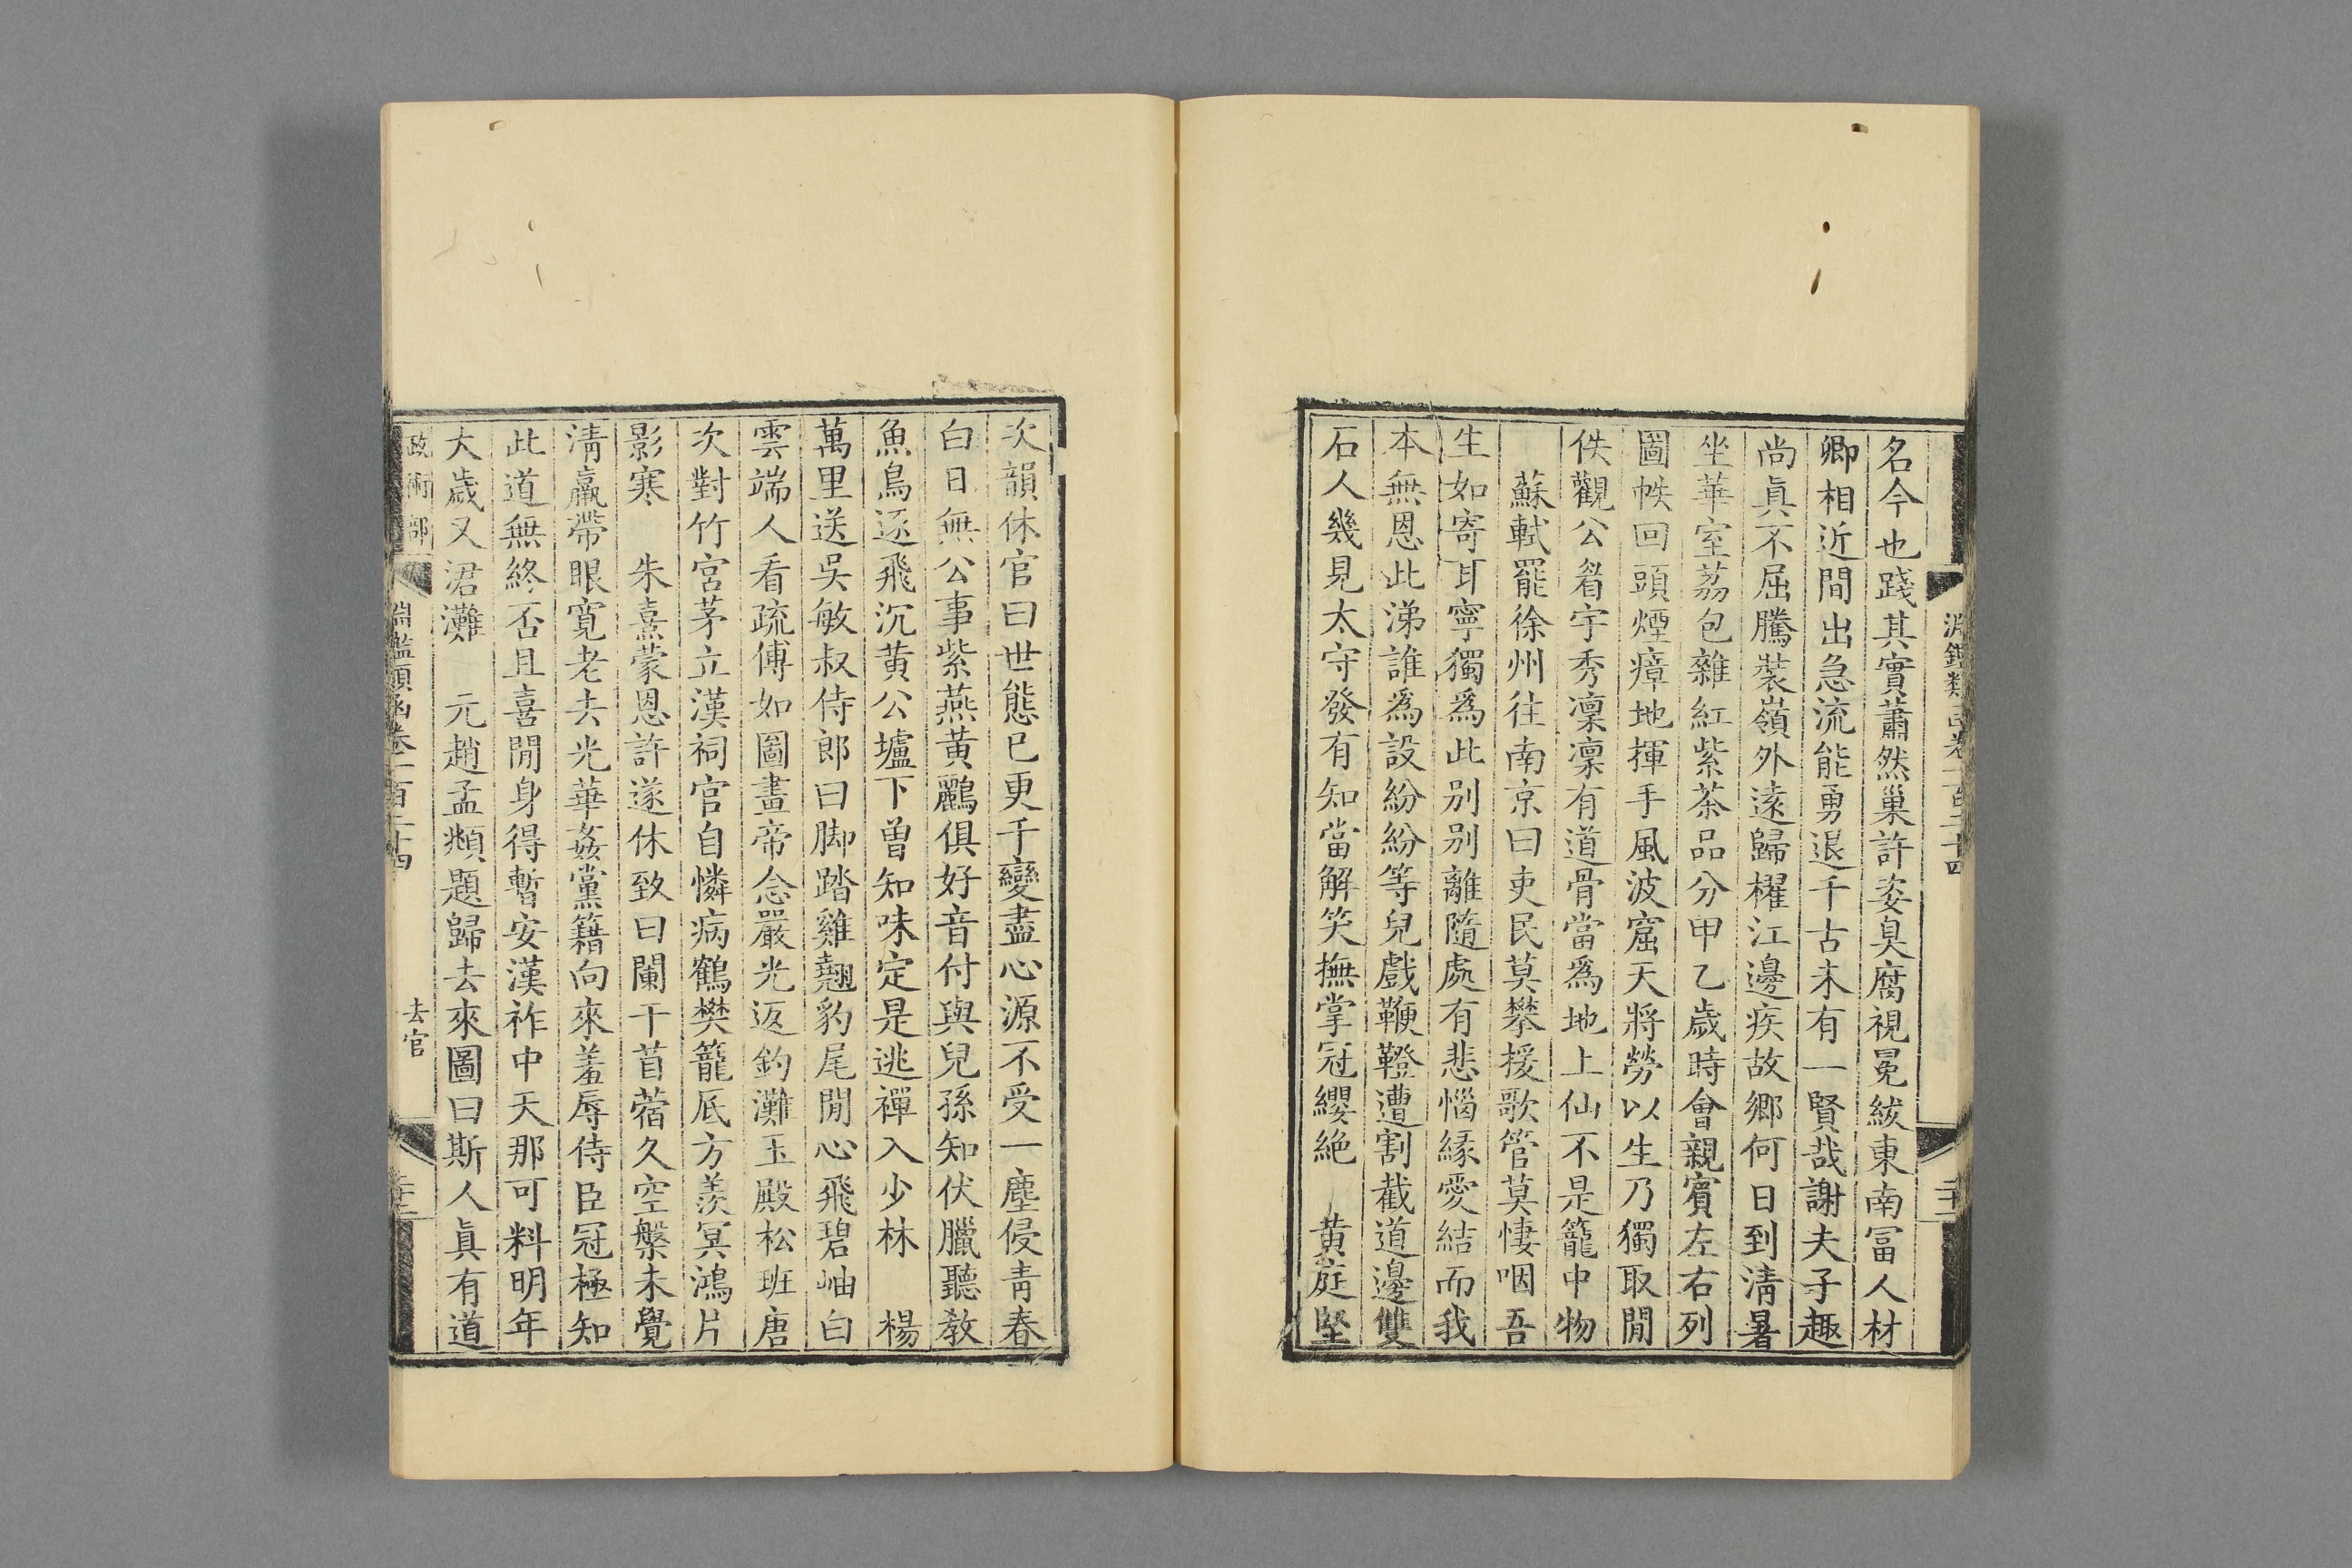 名今也踐其實蕭然巢許姿臭腐視冕紱東南富人材
卿相近間出急流能勇退千古未有一賢哉謝夫子趣
尚眞不屈騰裝嶺外遠歸櫂江邊疾故鄉何日到淸暑
坐華室荔包雜紅紫茶品分甲乙歲時會親賓左右列
圖帙回頭煙瘴地揮手風波窟天將勞以生乃獨取閒
佚觀公眉宇秀凜凜有道骨當爲地上仙不是籠中物
蘇軾罷徐州往南京曰吏民莫攀援歌管莫悽咽吾
生如寄耳寧獨爲此別別離隨處有悲惱緣愛結而我
本無恩此涕誰爲設紛紛等兒戲鞭鐙遭割截道邊雙
石人幾見太守發有知當解笑撫掌冠纓絶 黃庭堅
次韻休官曰世態已更千變盡心源不受一塵侵靑春
白日無公事紫燕黃鸝俱好音付與兒孫知伏臘聽敎
魚鳥逐飛沉黃公壚下曾知味定是逃禪入少林 楊
萬里送吳敏叔侍郎曰脚踏雞翹豹尾閒心飛碧岫白
雲端人看疏傅如圖畫帝念嚴光返釣灘玉殿松班唐
次對竹宮茅立漢祠官自憐病鶴樊籠底方羨冥鴻片
影寒 朱熹蒙恩許遂休致曰闌干苜蓿久空槃未覺
淸羸帶眼寬老去光華姦黨籍向來羞辱侍臣冠極知
此道無終否且喜閒身得暫安漢祚中天那可料明年
大歲又涒灘 元趙孟頫題歸去來圖曰斯人眞有道
政術部
淵鑑類函卷一百二十四
去官